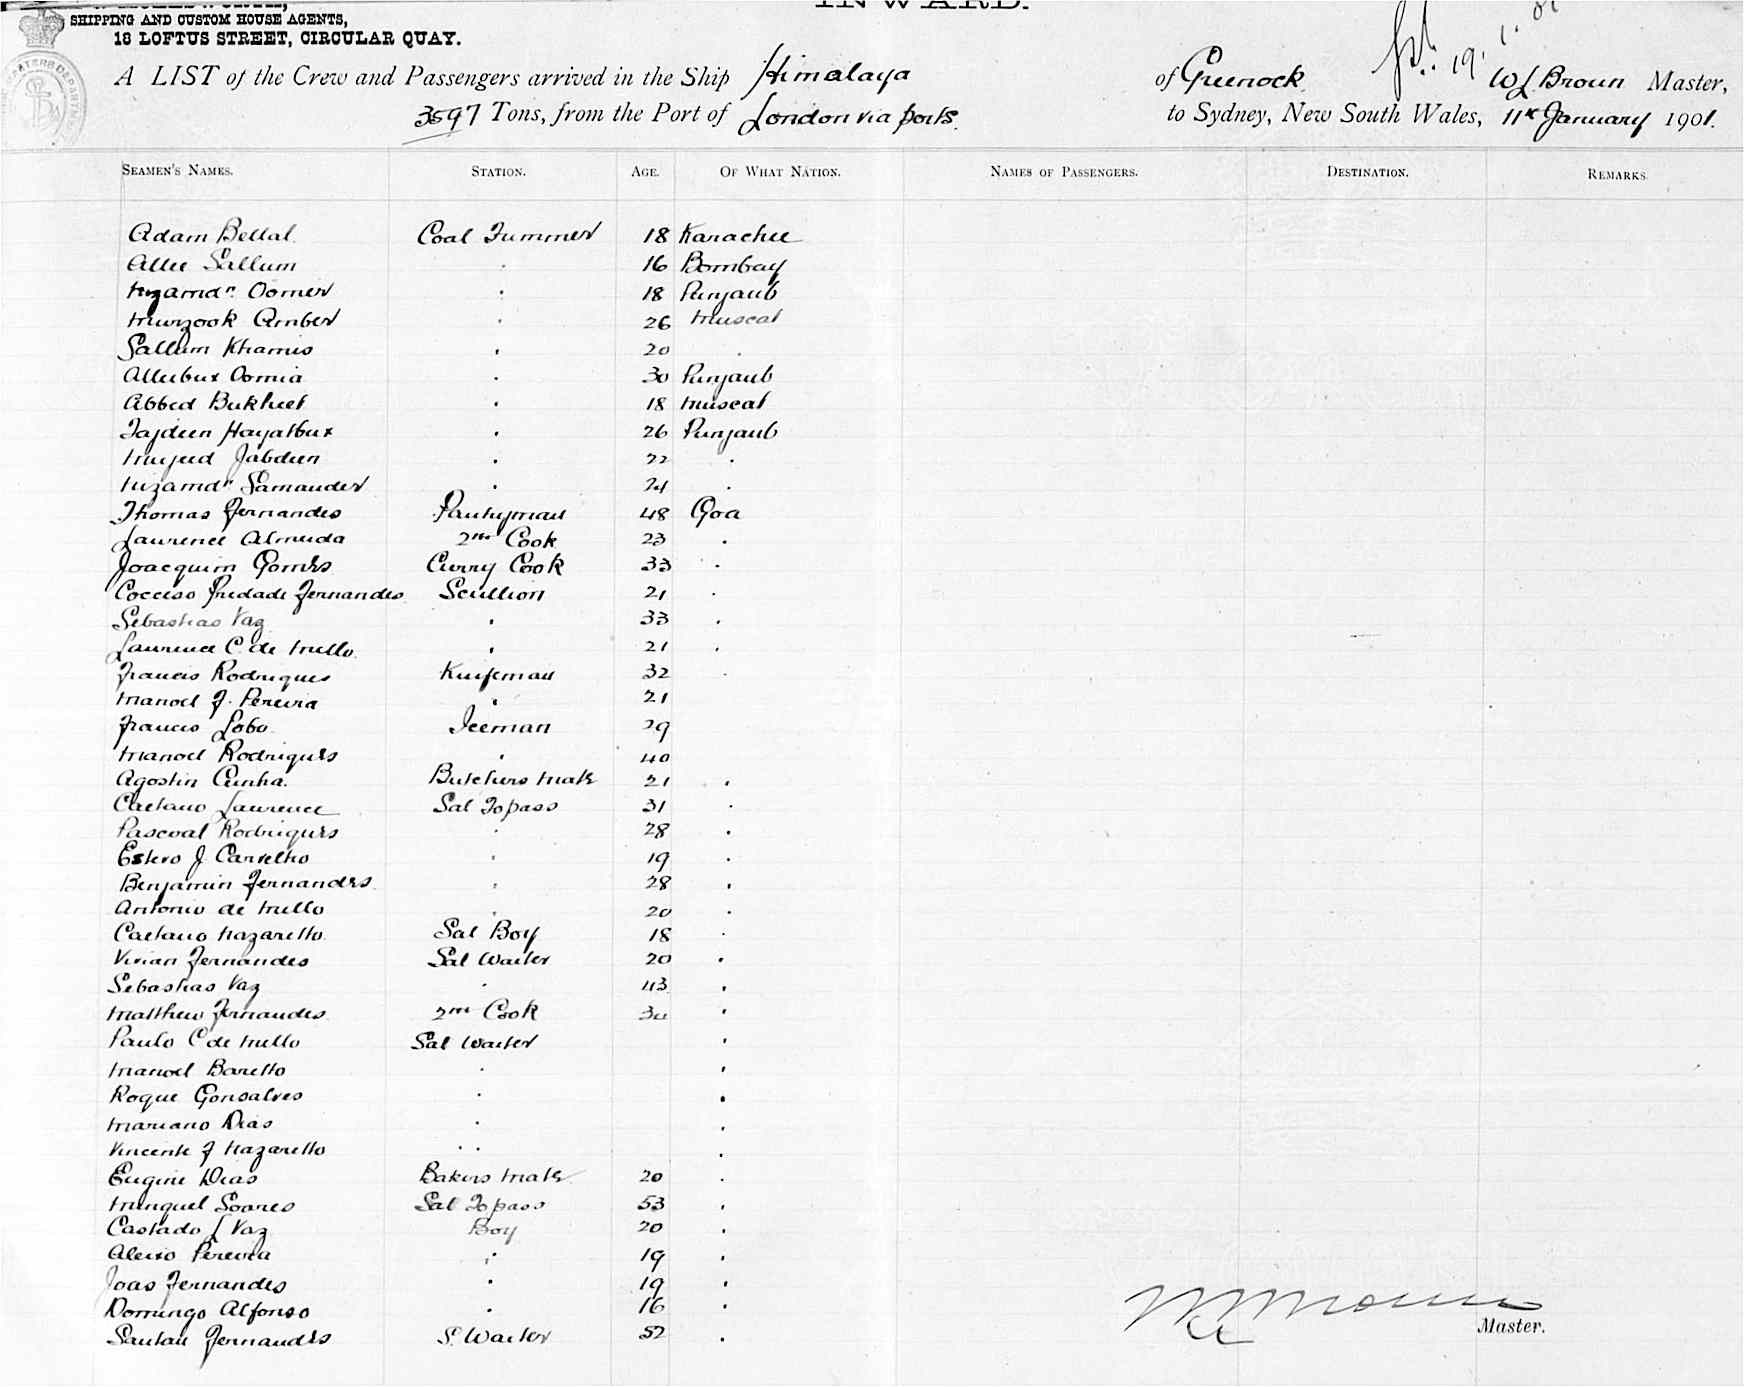 INWARD.
SHIPPING AND CUSTOM HOUSE AGENTS,
18 LOFTUS STREET, CIRCULAR QUAY.
A LIST of the Crew and Passengers arrived in the Ship Himalaya of Greenock W L Broun Master,
3597 Tons, from the Port of London via ports. to Sydney, New South Wales, 11th January 1901.
SEAMEN'S NAMES. STATION. AGE. OF WHAT NATION. NAMES OF PASSENGERS. DESTINATION. REMARKS.
Adam Bellal Coal Trimmer 18 Karachee
Allee Sallum " 16 Bombay
Nizamdn. Oomer " 18 Punjaub
Murzook Amber " 26 Muscat
Sallum Khamis " 20 "
Alleebux Oomia " 30 Punjaub
Abbed Bukheet " 18 Muscat
Tajdeen Hayatbux " 26 Punjaub
Mujeed Jabdeen " 22 "
Nizamdn Samander " 24 "
Thomas Fernandes Pantryman 48 Goa
Laurence Almeida 2nd Cook 23 "
Joacquim Gomes Curry Cook 33 "
Piedade Fernandes Scullion 21 "
Sebastiao Vaz " 33 "
Laurence C. de Mello " 21 "
Francis Rodrigues Knifeman 32 "
Manoel F. Pereira " 21
Francis Lobo Iceman 29
Manoel Rodrigues " 40
Agostin Cunha. Butchers Mate 21 "
Caetano Laurence Sal Topass 31 "
Pascoal Rodrigues " 28 "
Estevo J Carvelho " 19 "
Benjamin Fernandes " 28 "
Antonio de Mello " 20 "
Caetano Nazaretto Sal Boy 18 "
Vivian Fernandes Sal Waiter 20 "
Sebastiao Vaz " 43 "
Matthew Fernandes 2nd Cook 34 "
Paulo C de Mello Sal Waiter "
Manoel Baretto " "
Roque Gonsalves " "
Mariano Dias " "
Vincente F Nazaretto " "
Eugine Dias Bakers Mate 20 "
Minguel Soares Sal Topass 53 "
L Vaz Boy 20 "
Aleixo Pereira " 19 "
Joao Fernandes " 19 "
Domingo Alfonso " 16 "
Santan Fernandes S. Waiter 52 "
Master.